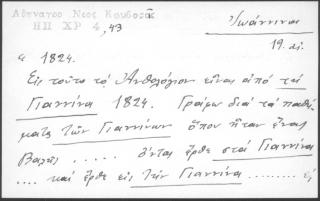 Αθηναγο Νεος Κουβαρᾶς
Ἰωάννινα
ΗΠ ΧΡ 4, 43
19. αἰ.
" 1824.
Εἰς τοῦτο τὸ Ἀνθολόγιον εἶναι ἀπὸ τὰ
Γιαννίνα 1824. Γράφω διὰ τὰ παθή-
ματα τῶν Γιαννίνων ὅπου ἦταν ἕνας
Βαλῆς ..... ὄντας ἦρθε στὰ Γιαννίνα
.... καὶ ἦρθε εἰς τὴν Γιαννίνα ......... εἰ